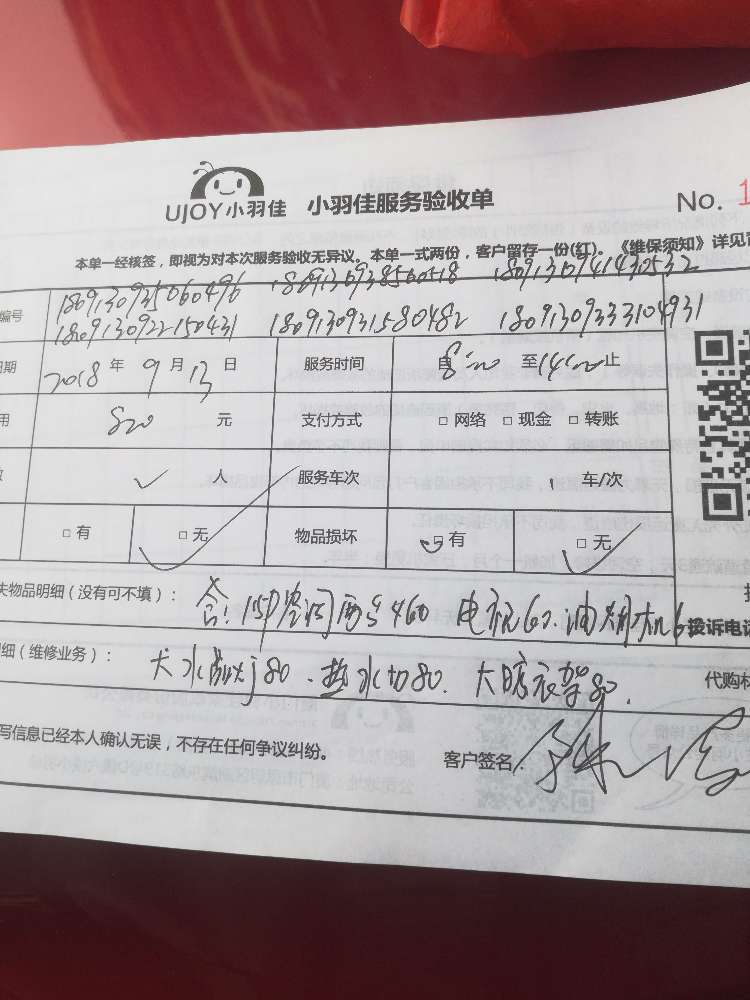 UJOY小羽佳 小羽佳服务验收单 No. 1
本单一经核签，即视为对本次服务验收无异议。本单一式两份，客户留存一份(红)。《维保须知》详见背
编号 1809130935060496 1809130938560518 1809130941430532
1809130922150431 1809130931580482 18091309333104931
日期 2018 年 9 月 13 日 服务时间 自 8:00 至 14:00 止
用 820 元 支付方式 □ 网络 □ 现金 □ 转账
数 人 服务车次 车/次
□ 有 □ 无 物品损坏 □ 有 □ 无
失物品明细（没有可不填）： 含：1.5P空调 460 电视60.油烟机6
投诉电话
明细（维修业务）： 大冰 80.热水 80.大晾衣架80.
代购材
写信息已经本人确认无误，不存在任何争议纠纷。
客户签名：